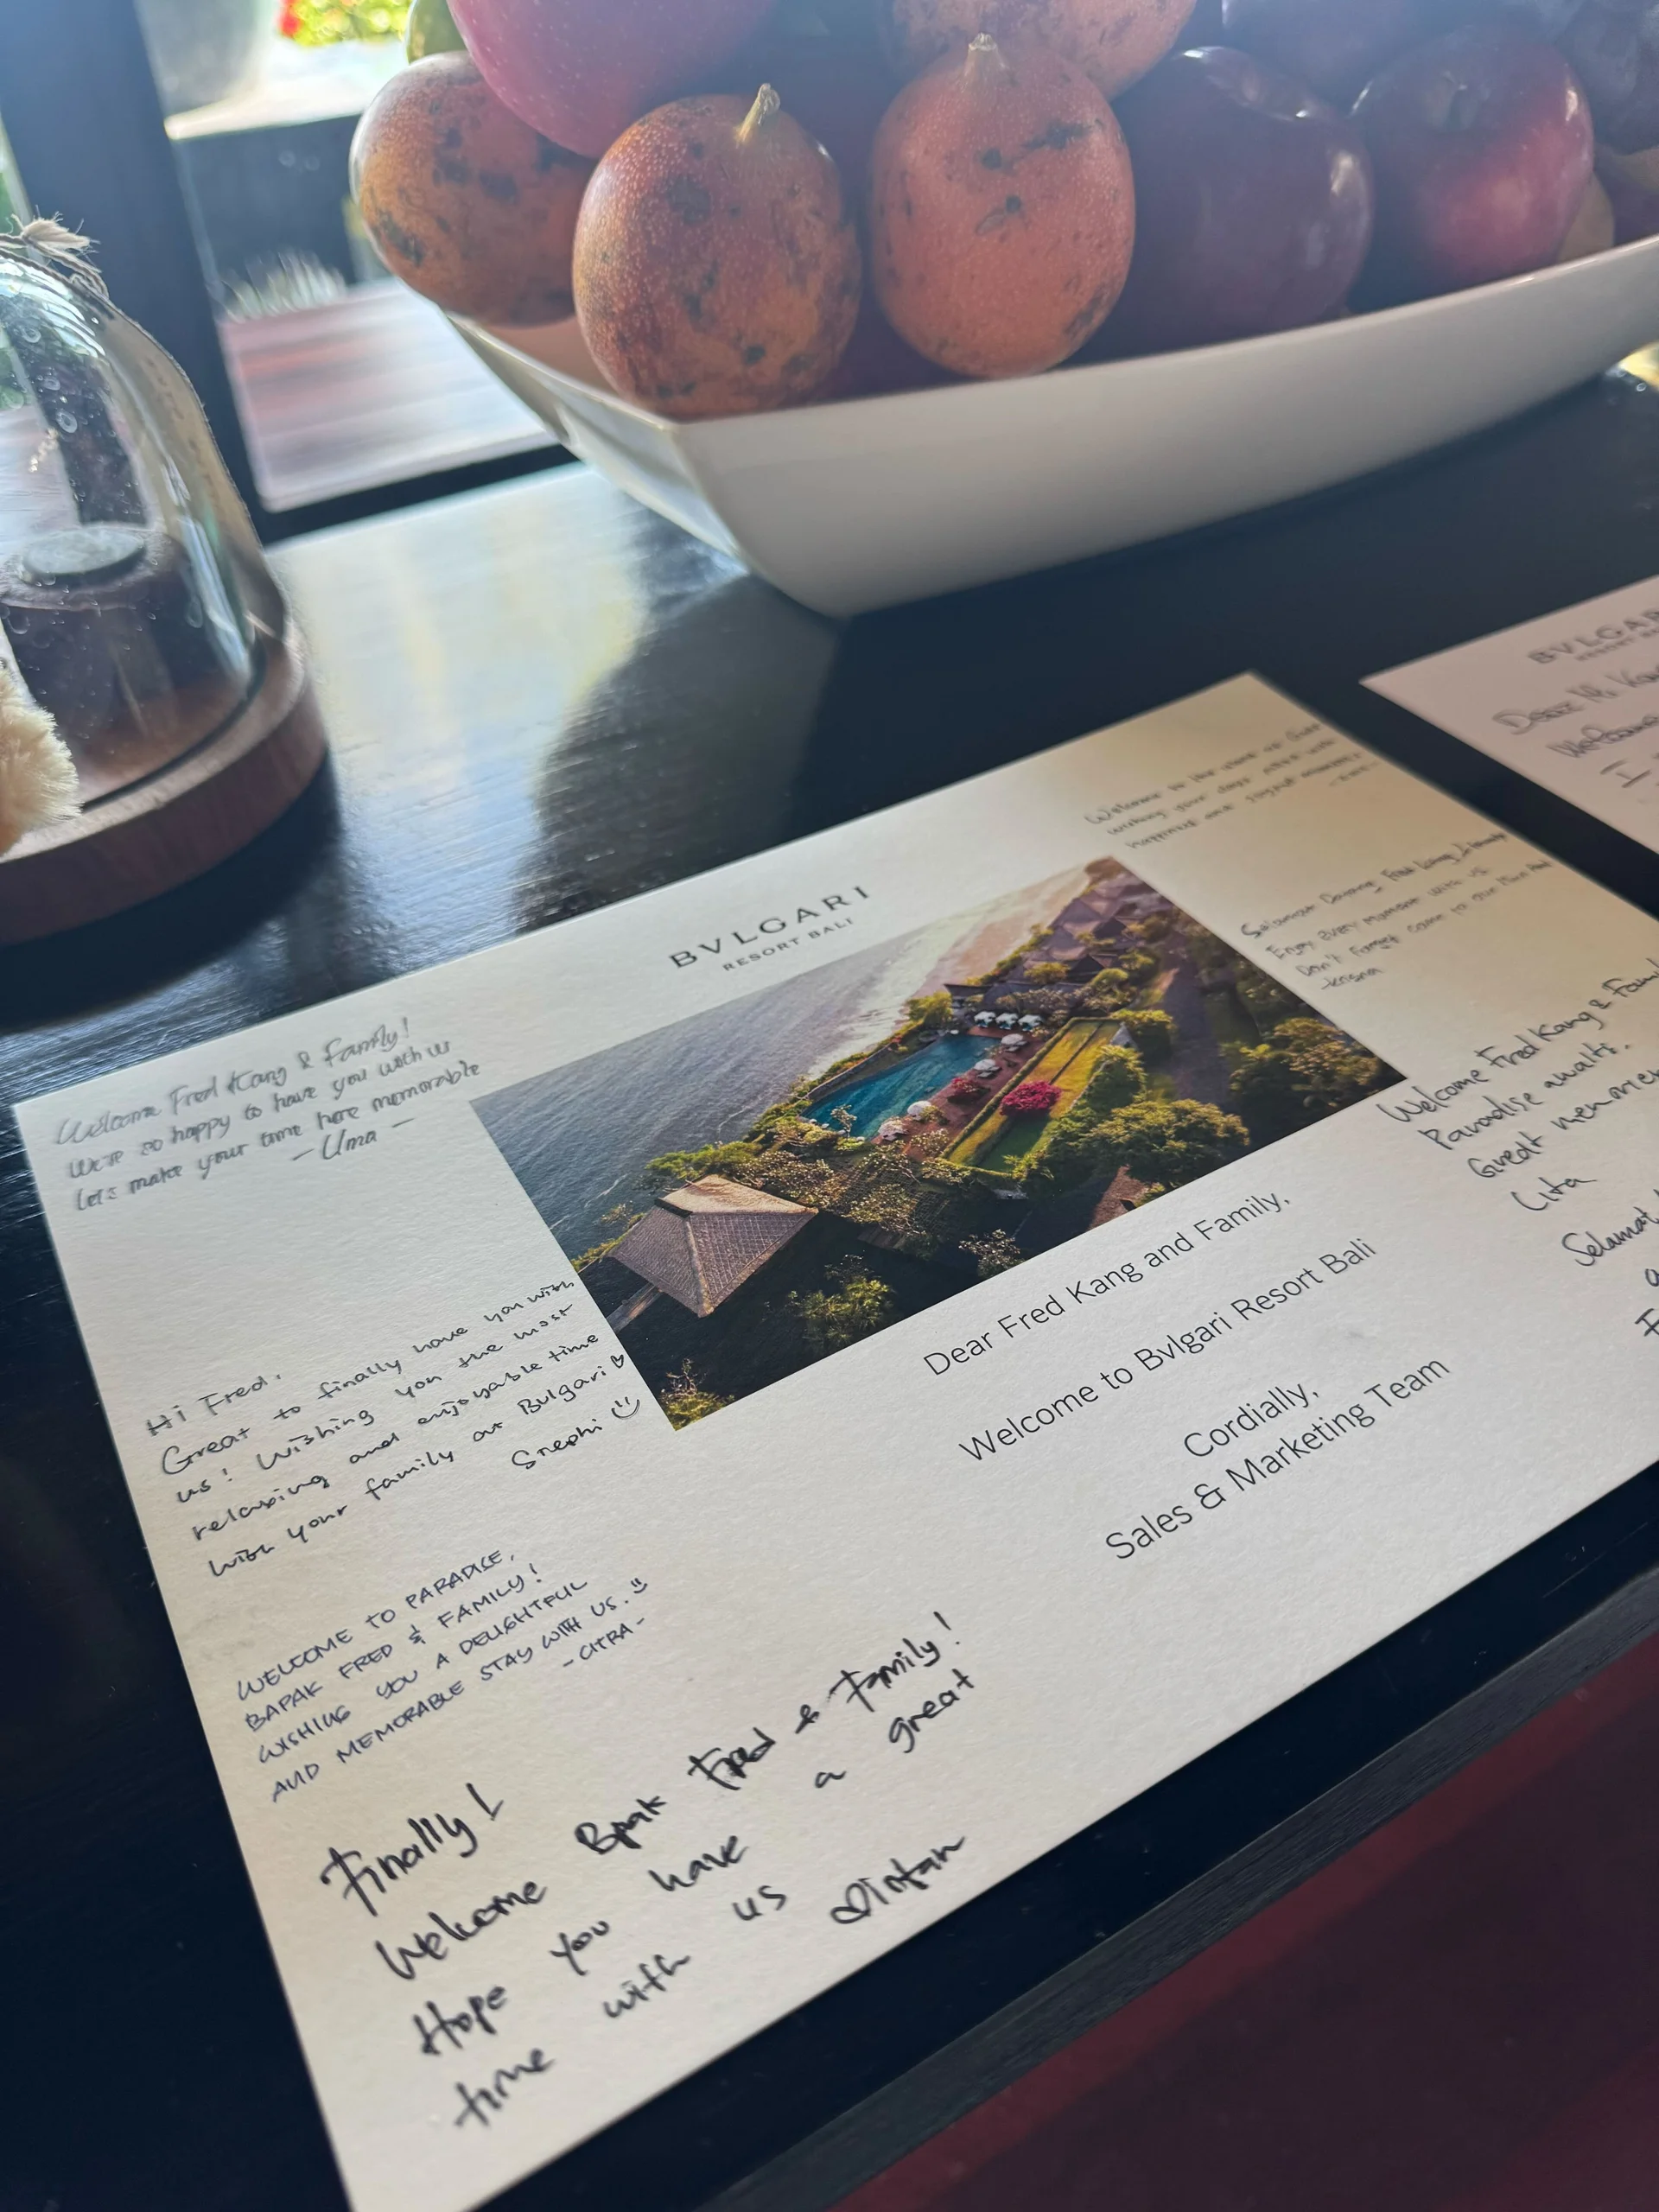 BVLGARI
RESORT BALI
Welcome Fred Kang & Family!
We're so happy to have you with us
let's make your time here memorable
- Uma -
Hi Fred,
Great to finally have you with
us! Wishing you the most
relaxing and enjoyable time
with your family at Bulgari
WELCOME TO PARADISE,
BAPAK FRED & FAMILY!
WISHING YOU A DELIGHTFUL
AND MEMORABLE STAY WITH US.
- CITRA -
Finally!
Welcome Bpak Fred & Family!
Hope you have a great
time with us
Dintan
Dear Fred Kang and Family,
Welcome to Bvlgari Resort Bali
Cordially,
Sales & Marketing Team
Welcome to the
wishing your days
happiness and
Selamat Datang Fred Kang & family
Enjoy every moment with us
Don't forget come to our
-Krisna
Welcome Fred Kang & Family
Paradise awaits.
Great
Cita
Selamat
BVLGARI
Dear Mr. Kang
Welcome
I